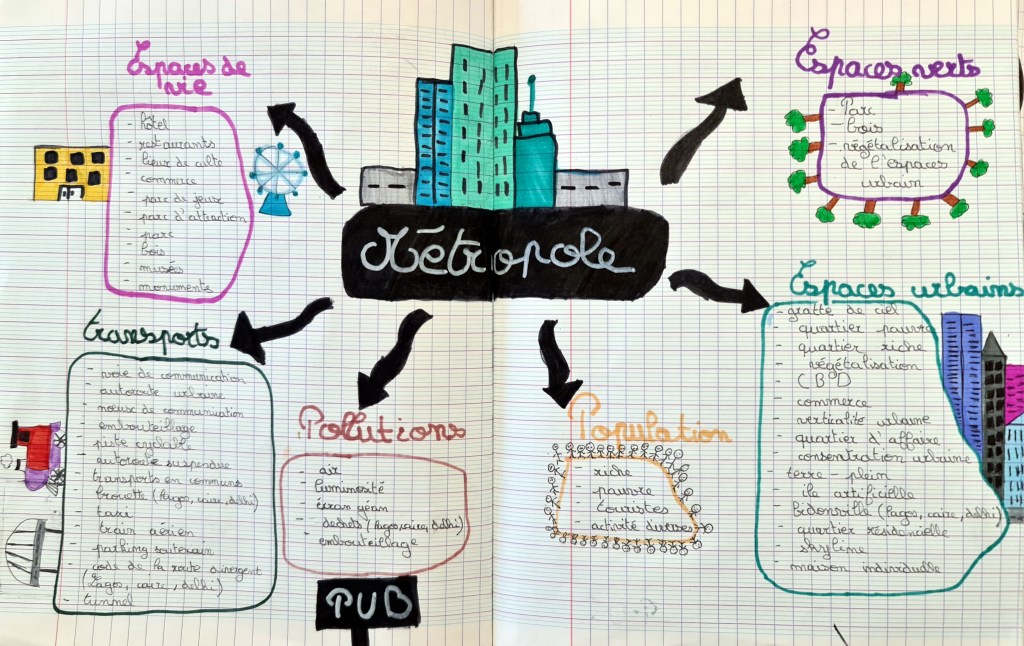 Métropole
Espaces de
vie
- hôtel
- restaurants
- lieux de culte
- commerce
- parc de jeux
- parc d'attraction
- parc
- bois
- musées
- monuments
transports
- voie de communication
- autoroute urbaine
- noeux de communication
- embouteillage
- piste cyclable
- autoroute suspendue
- transports en communs
- brouette (Lagos, caire, delhi)
- taxi
- train aérien
- parking souterain
- code de la route divergent
(Lagos, caire, delhi)
- tunnel
Pollutions
- air
- luminosité
- écran géan
- dechets (Lagos, caire, delhi)
- embouteillage
PUB
Population
- riche
- pauvre
- touristes
- activité diverses
Espaces verts
- Parc
- bois
- végétalisation
de l'espaces
urbain
Espaces urbains
- gratte de ciel
- quartier pauvre
- quartier riche
- végétalisation
- CBD
- commerce
- verticalité urbaine
- quartier d'affaire
- consentration urbaine
- terre plein
- ile artificielle
- Bidonville (Lagos, caire, delhi)
- quartier résidencielle
- skyline
- maison individuelle